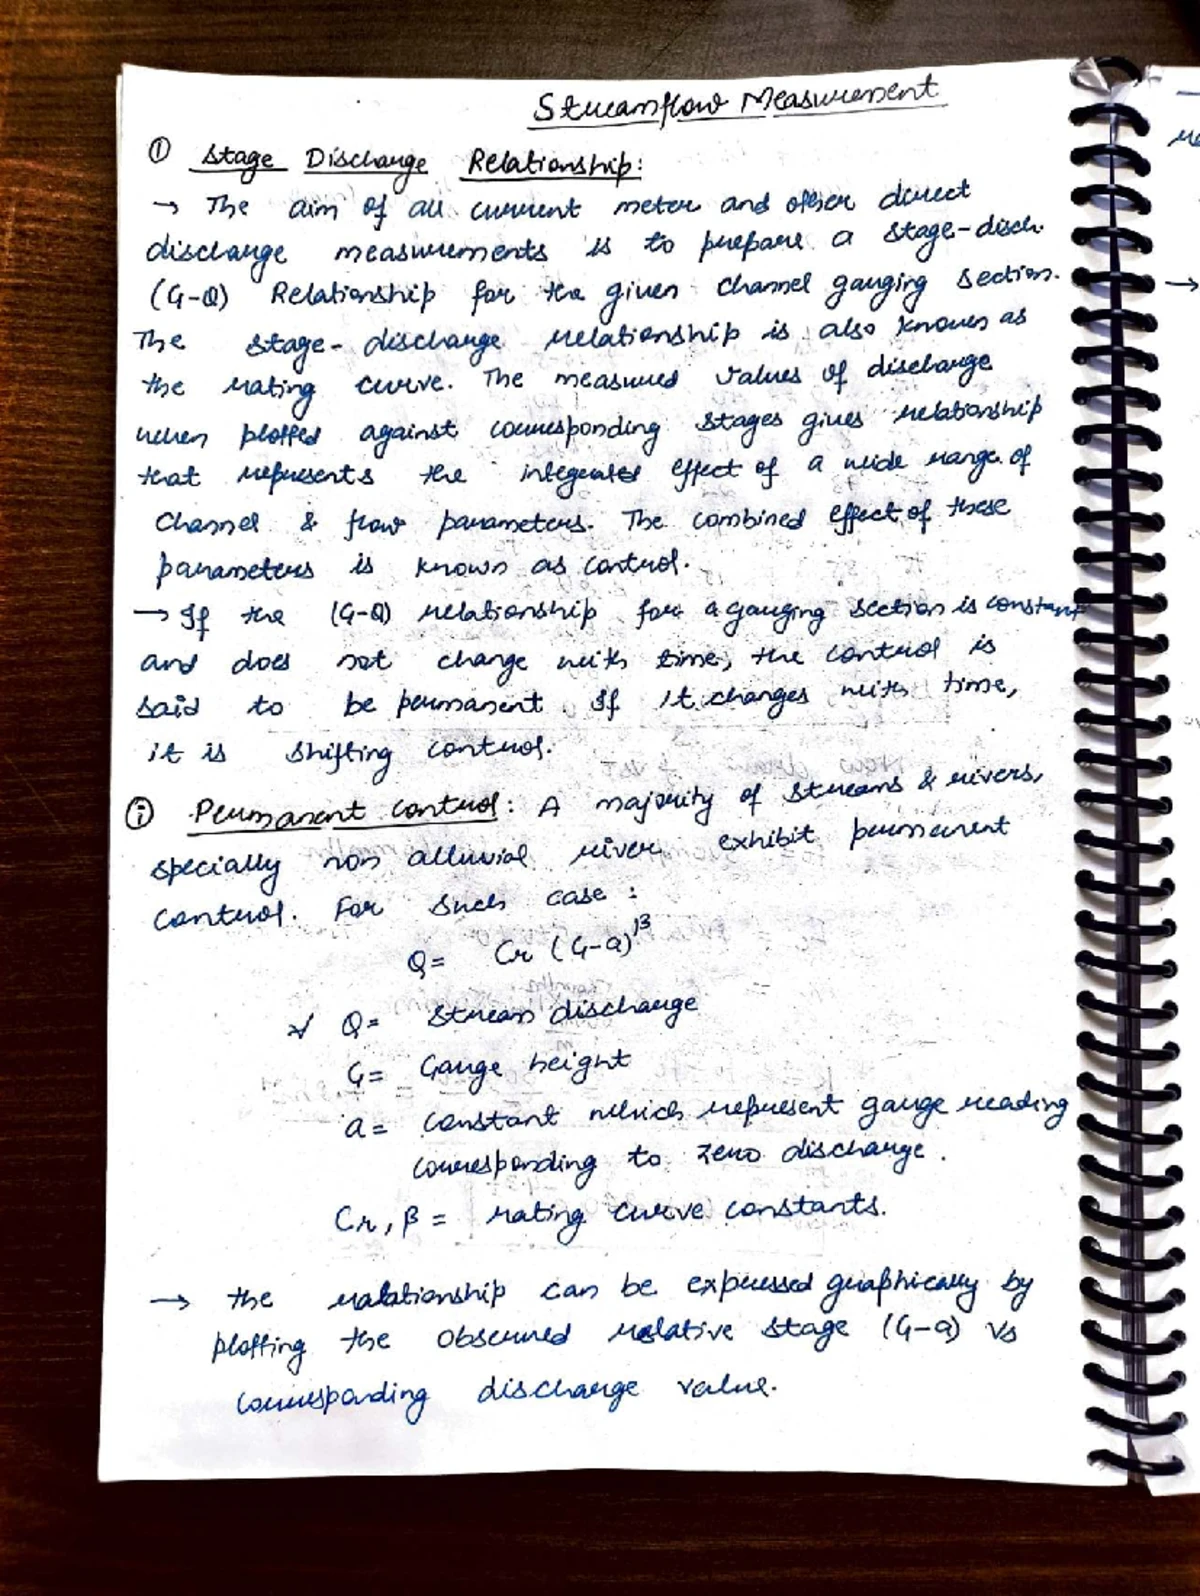 Streamflow Measurement
① Stage Discharge Relationship:
→ The aim of all current meter and other direct
discharge measurements is to prepare a stage-disch.
(G-Q) Relationship for the given channel gauging section.
The stage-discharge relationship is also known as
the rating curve. The measured values of discharge
when plotted against corresponding stages gives relationship
that represents the integrated effect of a wide range of
channel & flow parameters. The combined effect of these
parameters is known as control.
→ If the (G-Q) relationship for a gauging section is constant
and does not change with time, the control is
said to be permanent. If it changes with time,
it is shifting control.
ⓘ Permanent control: A majority of streams & rivers,
specially non alluvial river exhibit permanent
control. For such case:
Q = Cr (G-a)^β
Q = Stream discharge
G = Gauge height
a = constant which represent gauge reading
corresponding to zero discharge.
Cr, β = rating curve constants.
→ the relationship can be expressed graphically by
plotting the observed relative stage (G-a) vs
corresponding discharge value.